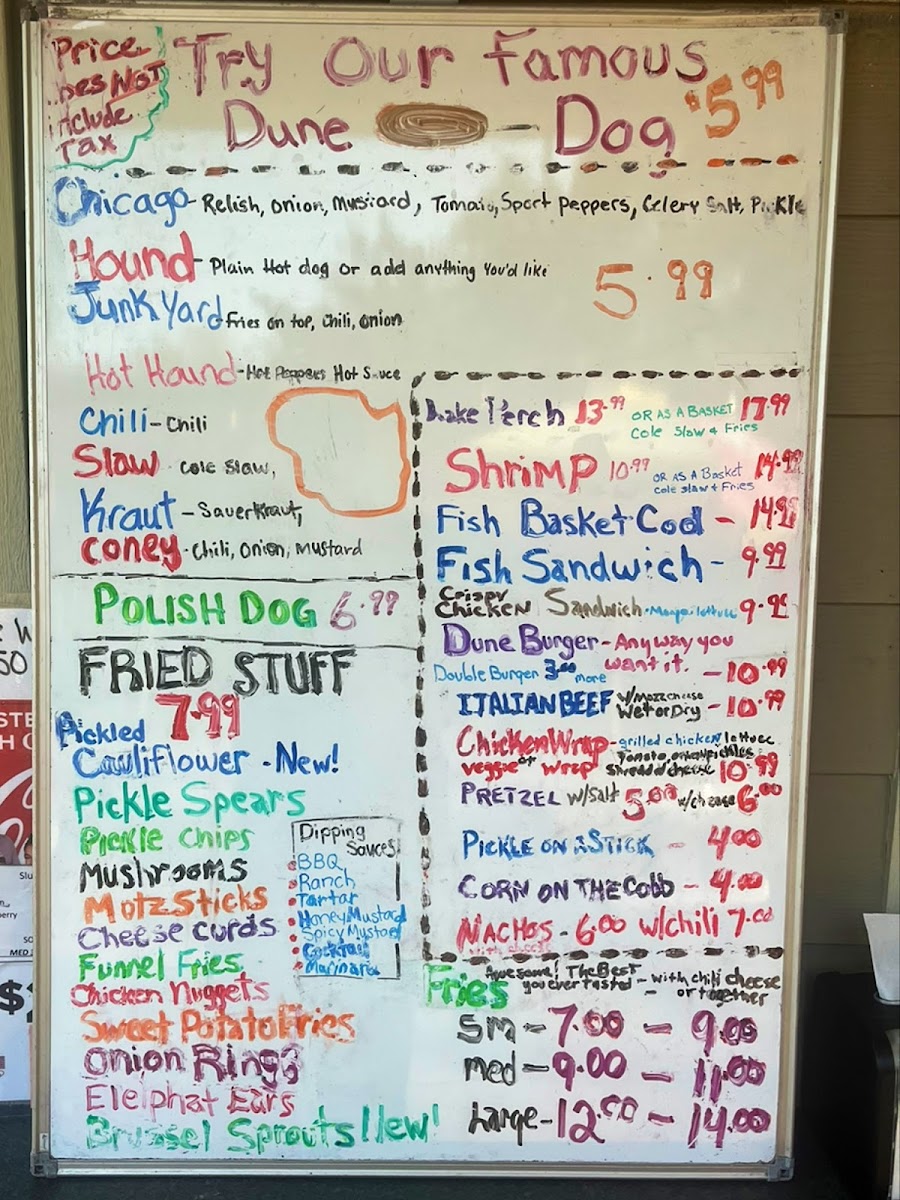 Price
Does NOT
include
Tax
Try Our Famous
Dune Dog $5.99
Chicago - Relish, Onion, Mustard, Tomato, Sport Peppers, Celery Salt, Pickle
Hound - Plain Hot dog or add anything You'd like
5.99
Junk Yard Fries on top, Chili, onion
Hot Hound - Hot Peppers Hot Sauce
Chili - Chili
Slaw Cole Slaw,
Kraut - Sauerkraut,
Coney - Chili, Onion, Mustard
POLISH DOG 6.99
FRIED STUFF
7.99
Pickled
Cauliflower - New!
Pickle Spears
Pickle Chips
Mushrooms
Motz Sticks
Cheese Curds
Funnel Fries
Chicken Nuggets
Sweet Potato Fries
Onion Rings
Elelphat Ears
Brussel Sprouts New!
Dipping
Sauces
BBQ
Ranch
Tartar
Honey Mustard
Spicy Mustard
Cocktail
Marinara
Lake Perch 13.99 OR AS A BASKET 17.99
Cole Slaw & Fries
Shrimp 10.99 OR AS A Basket 14.99
cole slaw & Fries
Fish Basket Cod - 14.99
Fish Sandwich - 9.99
Crispy
Chicken Sandwich - Mayo, lettuce 9.99
Dune Burger - Any way you
want it. - 10.99
Double Burger 3.00 more
ITALIAN BEEF w/ Mozz cheese
Wet or Dry - 10.99
Chicken Wrap - grilled chicken lettuce
or Tomato, onion, pickles
veggie wrap shredded cheese 10.99
PRETZEL w/Salt 5.00 w/cheese 6.00
PICKLE ON A STICK - 4.00
CORN ON THE COBB - 4.00
NACHOS - 6.00 w/chili 7.00
with cheese
Fries Awesome! The Best
you ever tasted - with chili cheese
or together
Sm - 7.00 - 9.00
med - 9.00 - 11.00
Large - 12.00 - 14.00